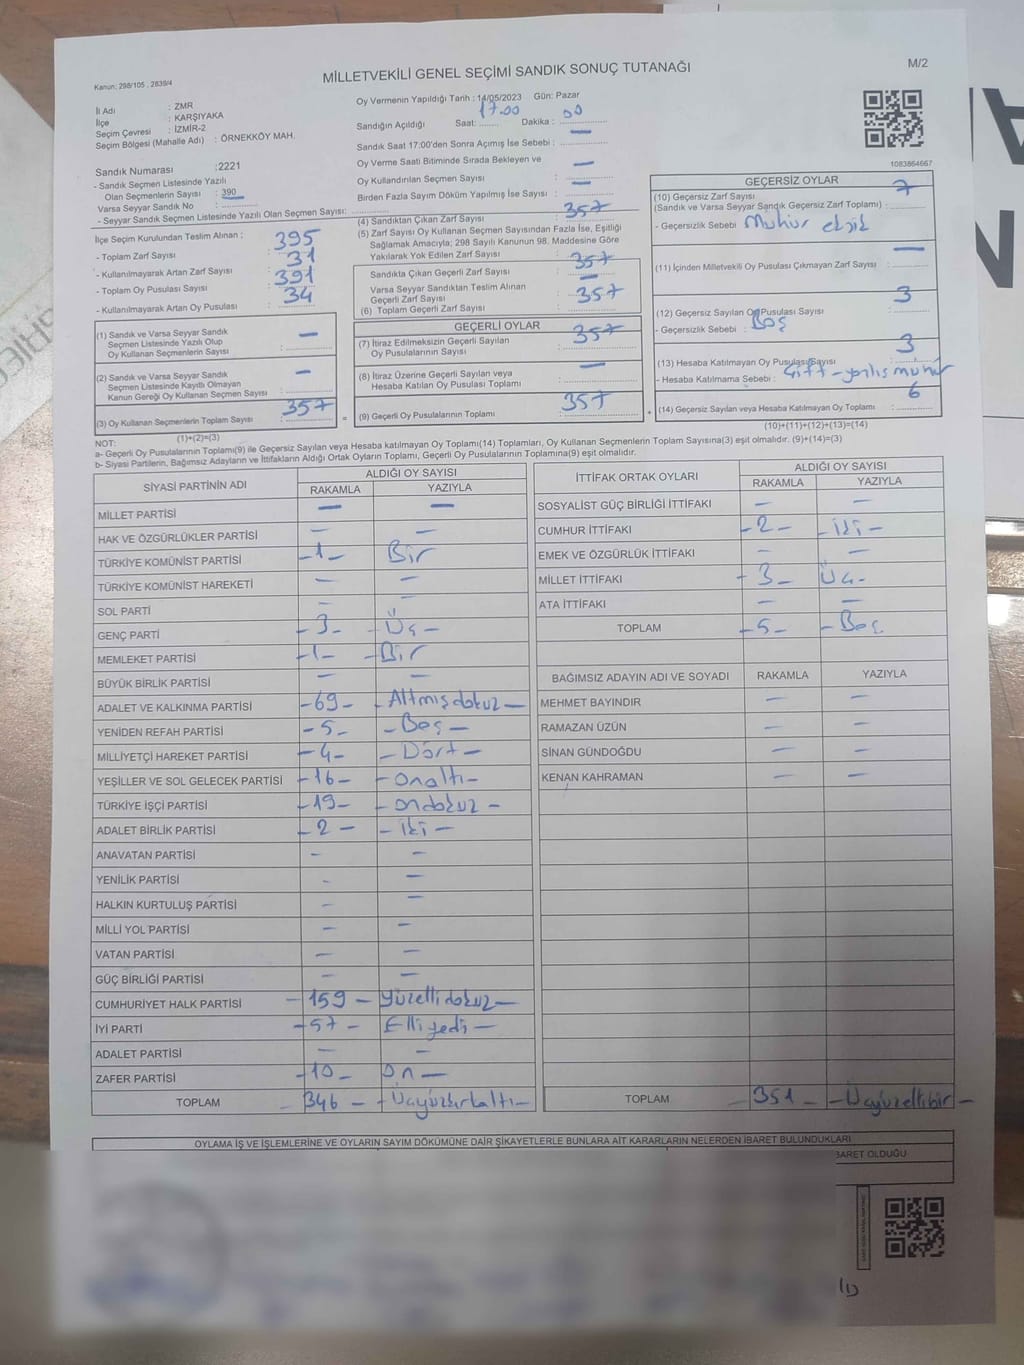 Kanun: 298/105 , 2839/4
MİLLETVEKİLİ GENEL SEÇİMİ SANDIK SONUÇ TUTANAĞI
M/2
İl Adı : ZMR
İlçe : KARŞIYAKA
Seçim Çevresi : İZMİR-2
Seçim Bölgesi (Mahalle Adı) : ÖRNEKKÖY MAH.
Oy Vermenin Yapıldığı Tarih : 14/05/2023 Gün: Pazar
Sandığın Açıldığı Saat: 17.00 Dakika : 00
Sandık Saat 17:00'den Sonra Açımış İse Sebebi : —
Oy Verme Saati Bitiminde Sırada Bekleyen ve
Oy Kullandırılan Seçmen Sayısı : —
Birden Fazla Sayım Döküm Yapılmış İse Sayısı : —
1083864667
Sandık Numarası : 2221
- Sandık Seçmen Listesinde Yazılı
Olan Seçmenlerin Sayısı : 390
Varsa Seyyar Sandık No : —
- Seyyar Sandık Seçmen Listesinde Yazılı Olan Seçmen Sayısı:
İlçe Seçim Kurulundan Teslim Alınan :
- Toplam Zarf Sayısı : 395
- Kullanılmayarak Artan Zarf Sayısı : 31
- Toplam Oy Pusulası Sayısı : 391
- Kullanılmayarak Artan Oy Pusulası : 34
(1) Sandık ve Varsa Seyyar Sandık
Seçmen Listesinde Yazılı Olup
Oy Kullanan Seçmenlerin Sayısı : —
(2) Sandık ve Varsa Seyyar Sandık
Seçmen Listesinde Kayıtlı Olmayan
Kanun Gereği Oy Kullanan Seçmen Sayısı : —
(3) Oy Kullanan Seçmenlerin Toplam Sayısı : 357
(1)+(2)=(3)
(4) Sandıktan Çıkan Zarf Sayısı : 357
(5) Zarf Sayısı Oy Kullanan Seçmen Sayısından Fazla İse, Eşitliği
Sağlamak Amacıyla; 298 Sayılı Kanunun 98. Maddesine Göre
Yakılarak Yok Edilen Zarf Sayısı :
Sandıkta Çıkan Geçerli Zarf Sayısı : 357
Varsa Seyyar Sandıktan Teslim Alınan
Geçerli Zarf Sayısı : —
(6) Toplam Geçerli Zarf Sayısı : 357
GEÇERLİ OYLAR
(7) İtiraz Edilmeksizin Geçerli Sayılan
Oy Pusulalarının Sayısı : 357
(8) İtiraz Üzerine Geçerli Sayılan veya
Hesaba Katılan Oy Pusulası Toplamı : —
(9) Geçerli Oy Pusulalarının Toplamı : 357
GEÇERSİZ OYLAR
(10) Geçersiz Zarf Sayısı 7
(Sandık ve Varsa Seyyar Sandık Geçersiz Zarf Toplamı) :
- Geçersizlik Sebebi : Mühür eksik
(11) İçinden Milletvekili Oy Pusulası Çıkmayan Zarf Sayısı : —
(12) Geçersiz Sayılan Oy Pusulası Sayısı : 3
- Geçersizlik Sebebi : Boş
(13) Hesaba Katılmayan Oy Pusulası Sayısı : 3
- Hesaba Katılmama Sebebi : Çift - yanlış mühür
(14) Geçersiz Sayılan veya Hesaba Katılmayan Oy Toplamı : 6
(10)+(11)+(12)+(13)=(14)
NOT:
a- Geçerli Oy Pusulalarının Toplamı(9) ile Geçersiz Sayılan veya Hesaba katılmayan Oy Toplamı(14) Toplamları, Oy Kullanan Seçmenlerin Toplam Sayısına(3) eşit olmalıdır. (9)+(14)=(3)
b- Siyasi Partilerin, Bağımsız Adayların ve İttifakların Aldığı Ortak Oyların Toplamı, Geçerli Oy Pusulalarının Toplamına(9) eşit olmalıdır.
SİYASİ PARTİNİN ADI ALDIĞI OY SAYISI
RAKAMLA YAZIYLA
MİLLET PARTİSİ — —
HAK VE ÖZGÜRLÜKLER PARTİSİ — —
TÜRKİYE KOMÜNİST PARTİSİ -1- Bir
TÜRKİYE KOMÜNİST HAREKETİ — —
SOL PARTİ — —
GENÇ PARTİ -3- -Üç-
MEMLEKET PARTİSİ -1- -Bir
BÜYÜK BİRLİK PARTİSİ — —
ADALET VE KALKINMA PARTİSİ -69- -Altmışdokuz-
YENİDEN REFAH PARTİSİ -5- -Beş-
MİLLİYETÇİ HAREKET PARTİSİ -4- -Dört-
YEŞİLLER VE SOL GELECEK PARTİSİ -16- -Onaltı-
TÜRKİYE İŞÇİ PARTİSİ -19- -Ondokuz-
ADALET BİRLİK PARTİSİ -2- -iki-
ANAVATAN PARTİSİ — —
YENİLİK PARTİSİ — —
HALKIN KURTULUŞ PARTİSİ — —
MİLLİ YOL PARTİSİ — —
VATAN PARTİSİ — —
GÜÇ BİRLİĞİ PARTİSİ — —
CUMHURİYET HALK PARTİSİ -159- Yüzellidokuz-
İYİ PARTİ -57- Elliyedi-
ADALET PARTİSİ — —
ZAFER PARTİSİ -10- On-
TOPLAM -346- -Üçyüzkırkaltı-
İTTİFAK ORTAK OYLARI ALDIĞI OY SAYISI
RAKAMLA YAZIYLA
SOSYALİST GÜÇ BİRLİĞİ İTTİFAKI — —
CUMHUR İTTİFAKI -2- -iki-
EMEK VE ÖZGÜRLÜK İTTİFAKI — —
MİLLET İTTİFAKI -3- Üç-
ATA İTTİFAKI — —
TOPLAM -5- -Beş
BAĞIMSIZ ADAYIN ADI VE SOYADI RAKAMLA YAZIYLA
MEHMET BAYINDIR — —
RAMAZAN ÜZÜN — —
SİNAN GÜNDOĞDU — —
KENAN KAHRAMAN — —
TOPLAM -351- -Üçyüzellibir-
OYLAMA İŞ VE İŞLEMLERİNE VE OYLARIN SAYIM DÖKÜMÜNE DAİR ŞİKAYETLERLE BUNLARA AİT KARARLARIN NELERDEN İBARET BULUNDUKLARI
BARET OLDUĞU